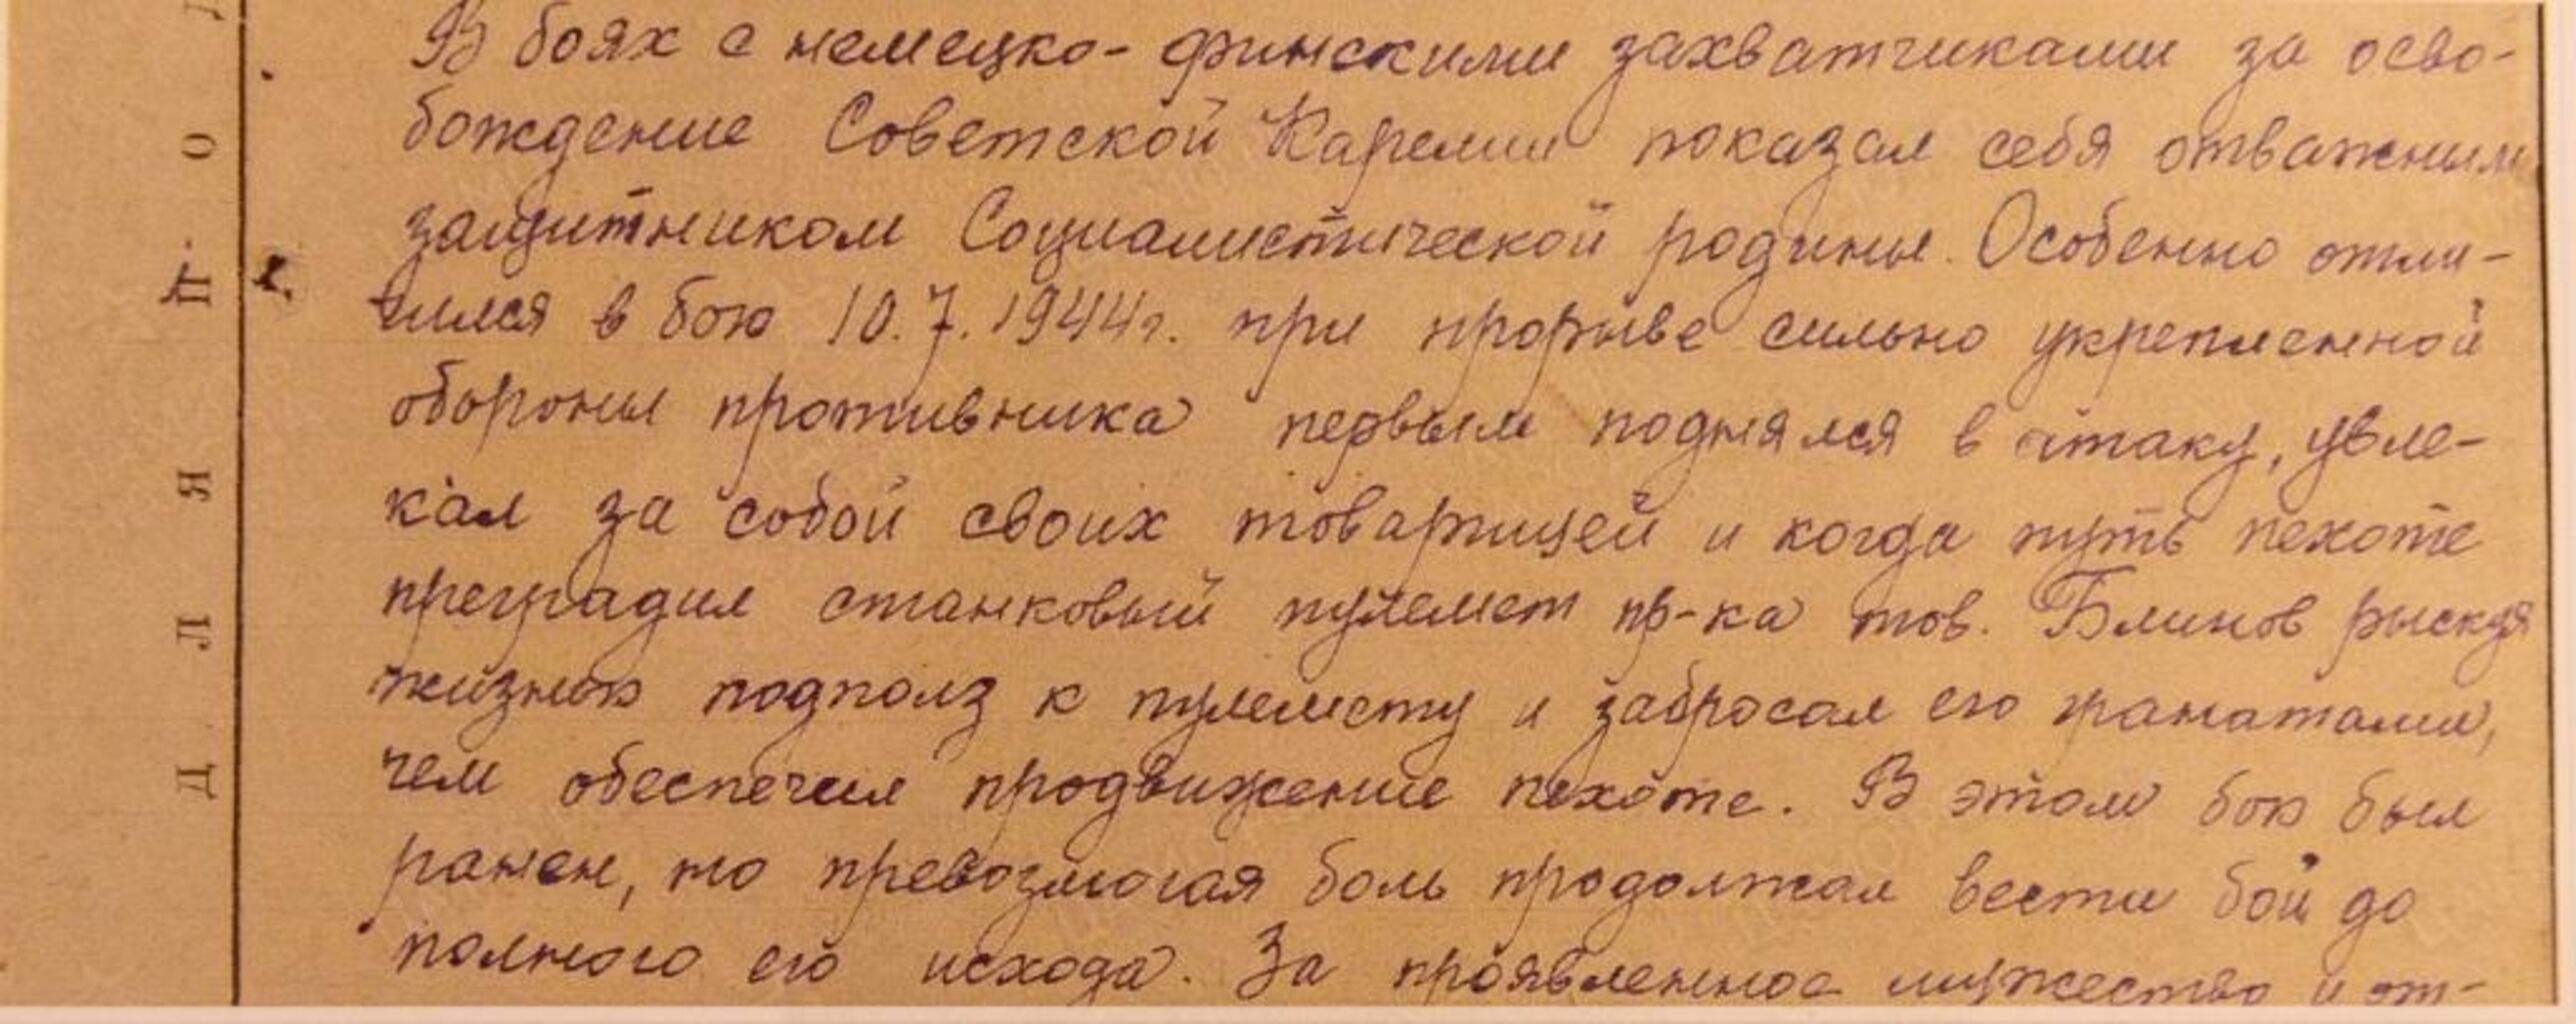 В боях с немецко-финскими захватчиками за осво-
бождение Советской Карелии показал себя отважным
защитником Социалистической родины. Особенно отли-
чился в бою 10.7.1944г. при прорыве сильно укрепленной
обороны противника первым поднялся в атаку, увле-
кал за собой своих товарищей и когда путь пехоте
преградил станковый пулемет пр-ка тов. Блинов рыскуя
жизнью подполз к пулемету и забросал его гранатами,
чем обеспечил продвижение пехоте. В этом бою был
ранен, но превозмогая боль продолжал вести бой до
полного его исхода. За проявленное мужество и от-
Д Л Я П О